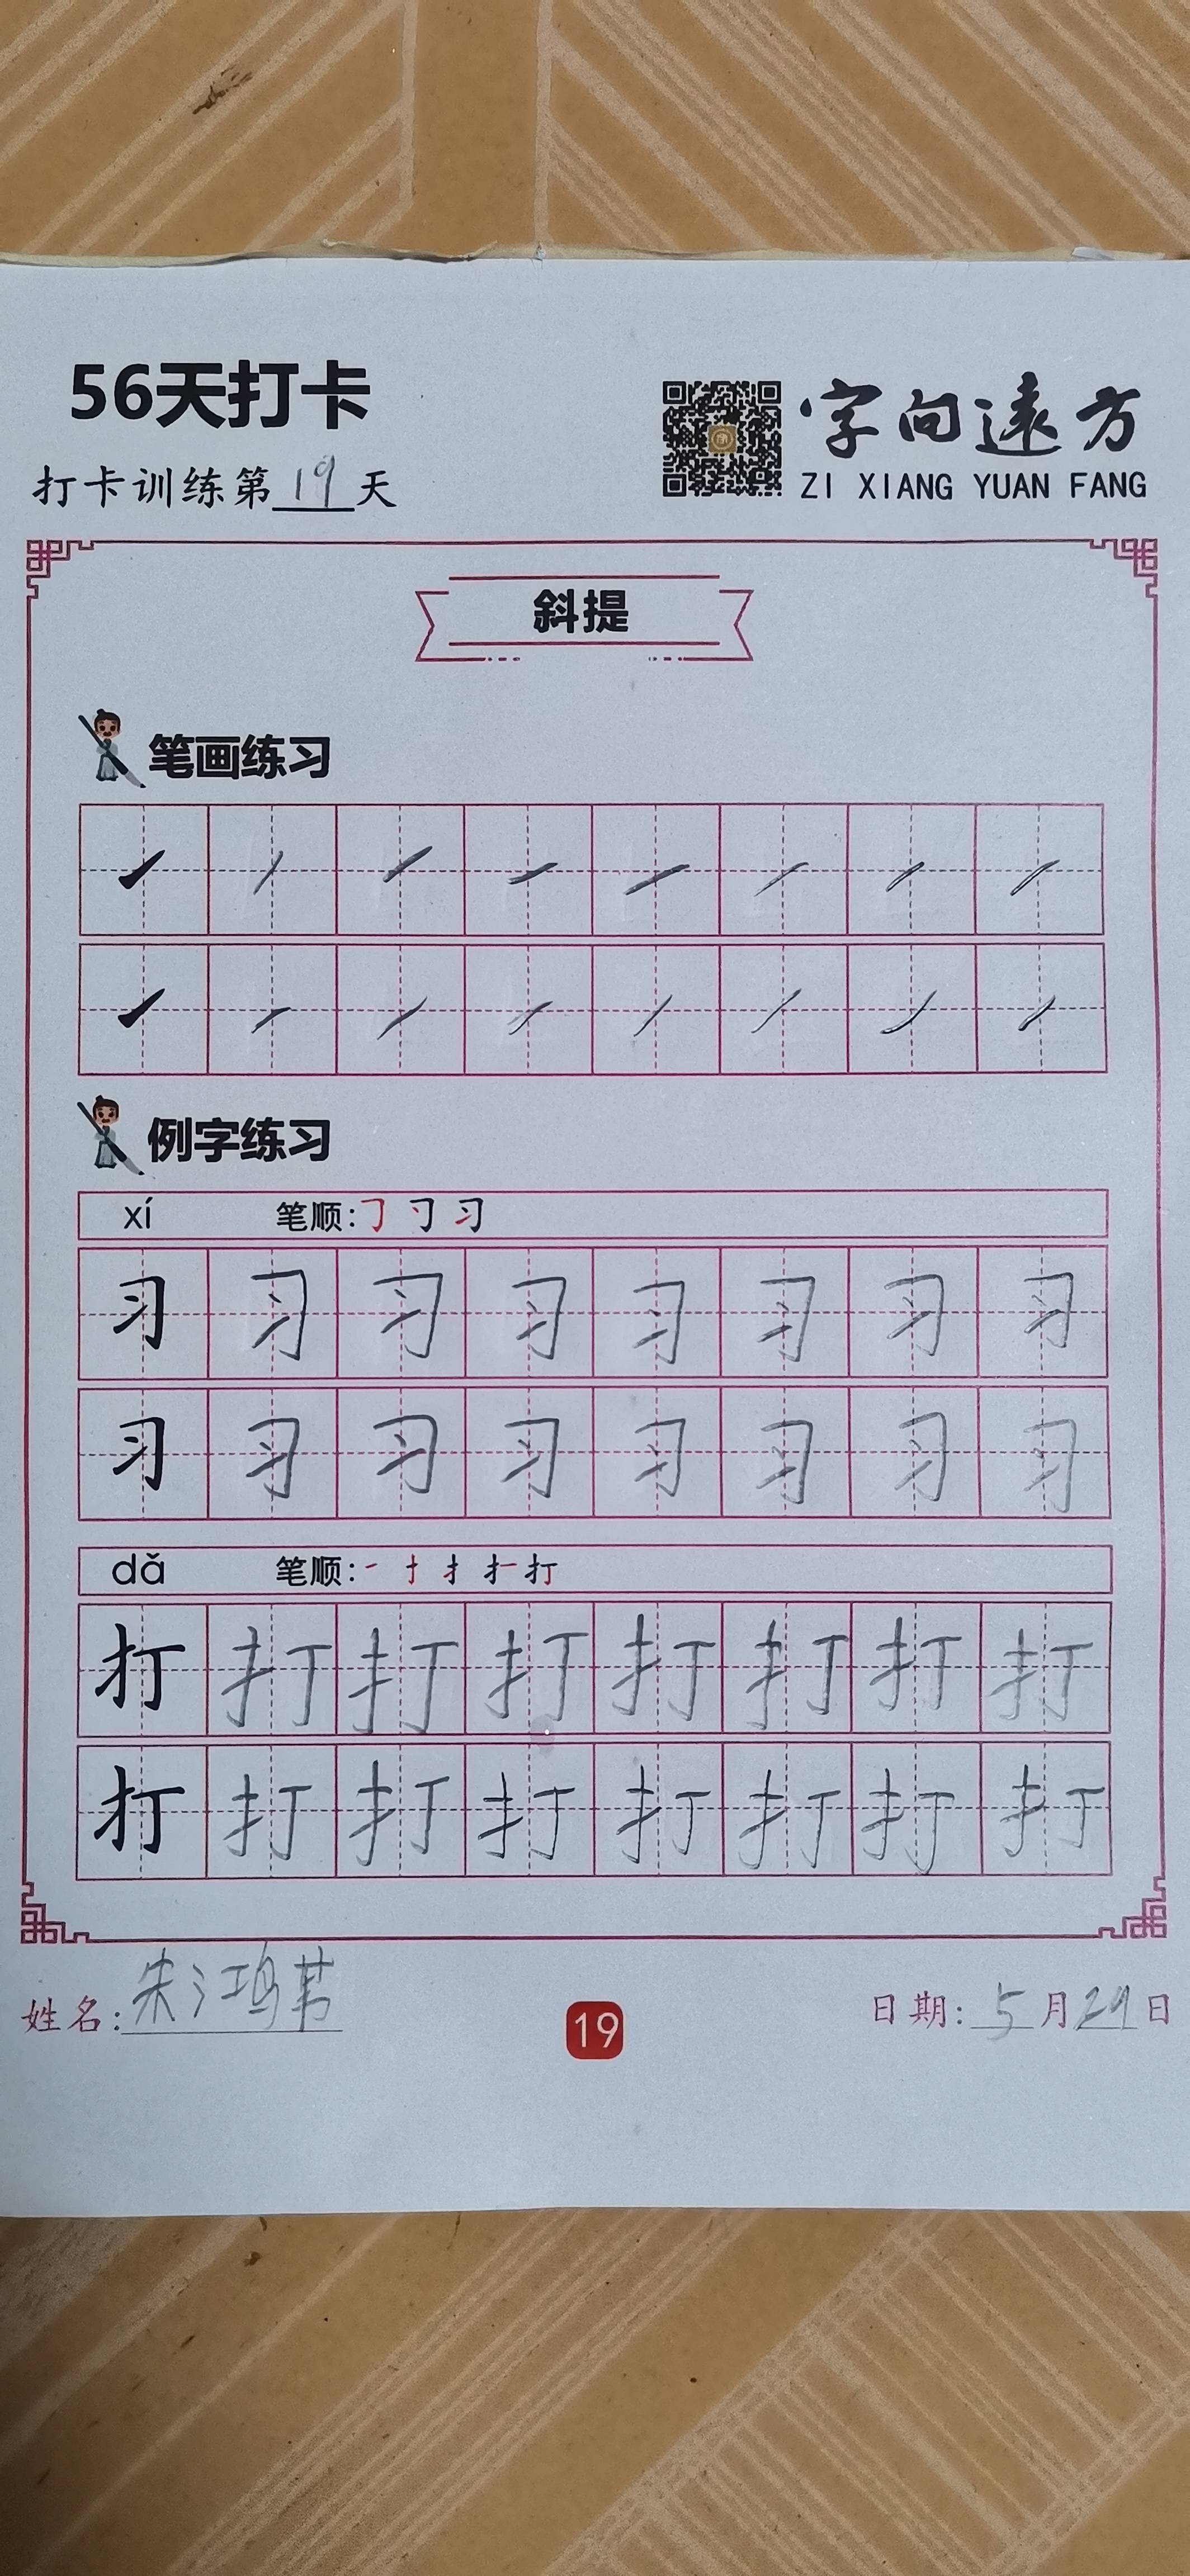 56天打卡
打卡训练第19天
字向远方
ZI XIANG YUAN FANG
斜提
笔画练习
例字练习
xí 笔顺:
习 习 习 习 习 习 习 习
习 习 习 习 习 习 习 习
dǎ 笔顺: 一 扌 打
打 打 打 打 打 打 打 打
打 打 打 打 打 打 打 打
姓名: 朱鸿
19
日期: 5月29日